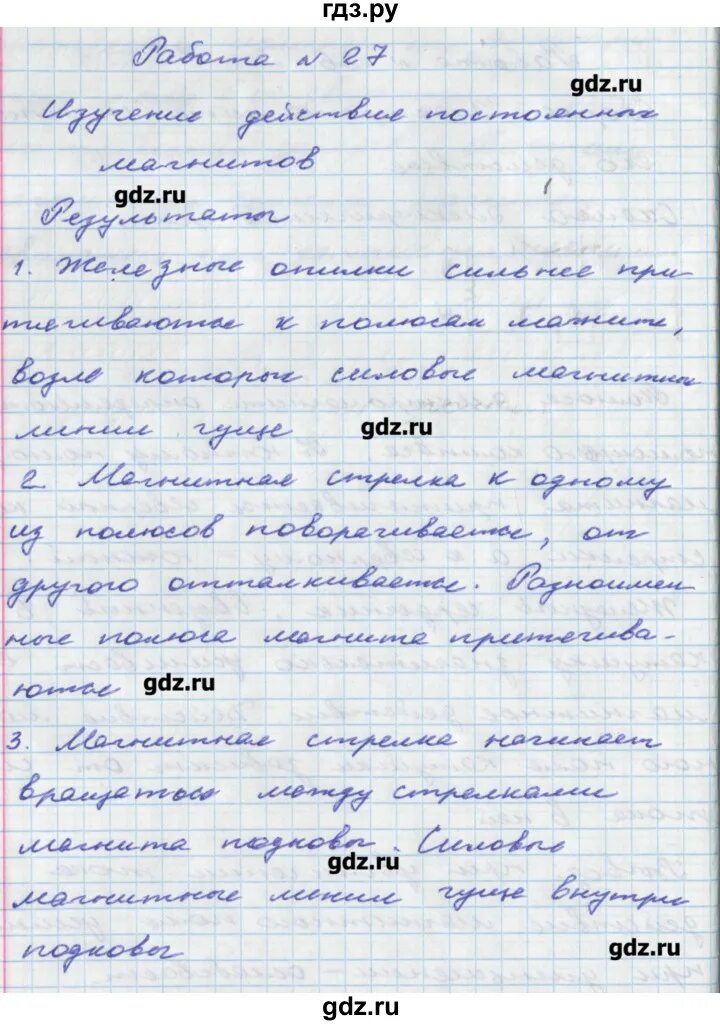 гдз.ру
Работа № 27
gdz.ru
Изучение действия постоянных
магнитов
gdz.ru
Результаты
1. Железные опилки сильнее при-
тягиваются к полюсам магнита,
возле которых силовые магнитные
линии гуще
gdz.ru
2. Магнитная стрелка к одному
из полюсов поворачивается, от
другого отталкивается. Разноимен
ные полюса магнита притягива-
ются
gdz.ru
3. Магнитная стрелка начинает
вращаться между стрелками
магнита подковы. Силовые
gdz.ru
магнитные линии гуще внутри
подковы
gdz.ru
gdz.ru